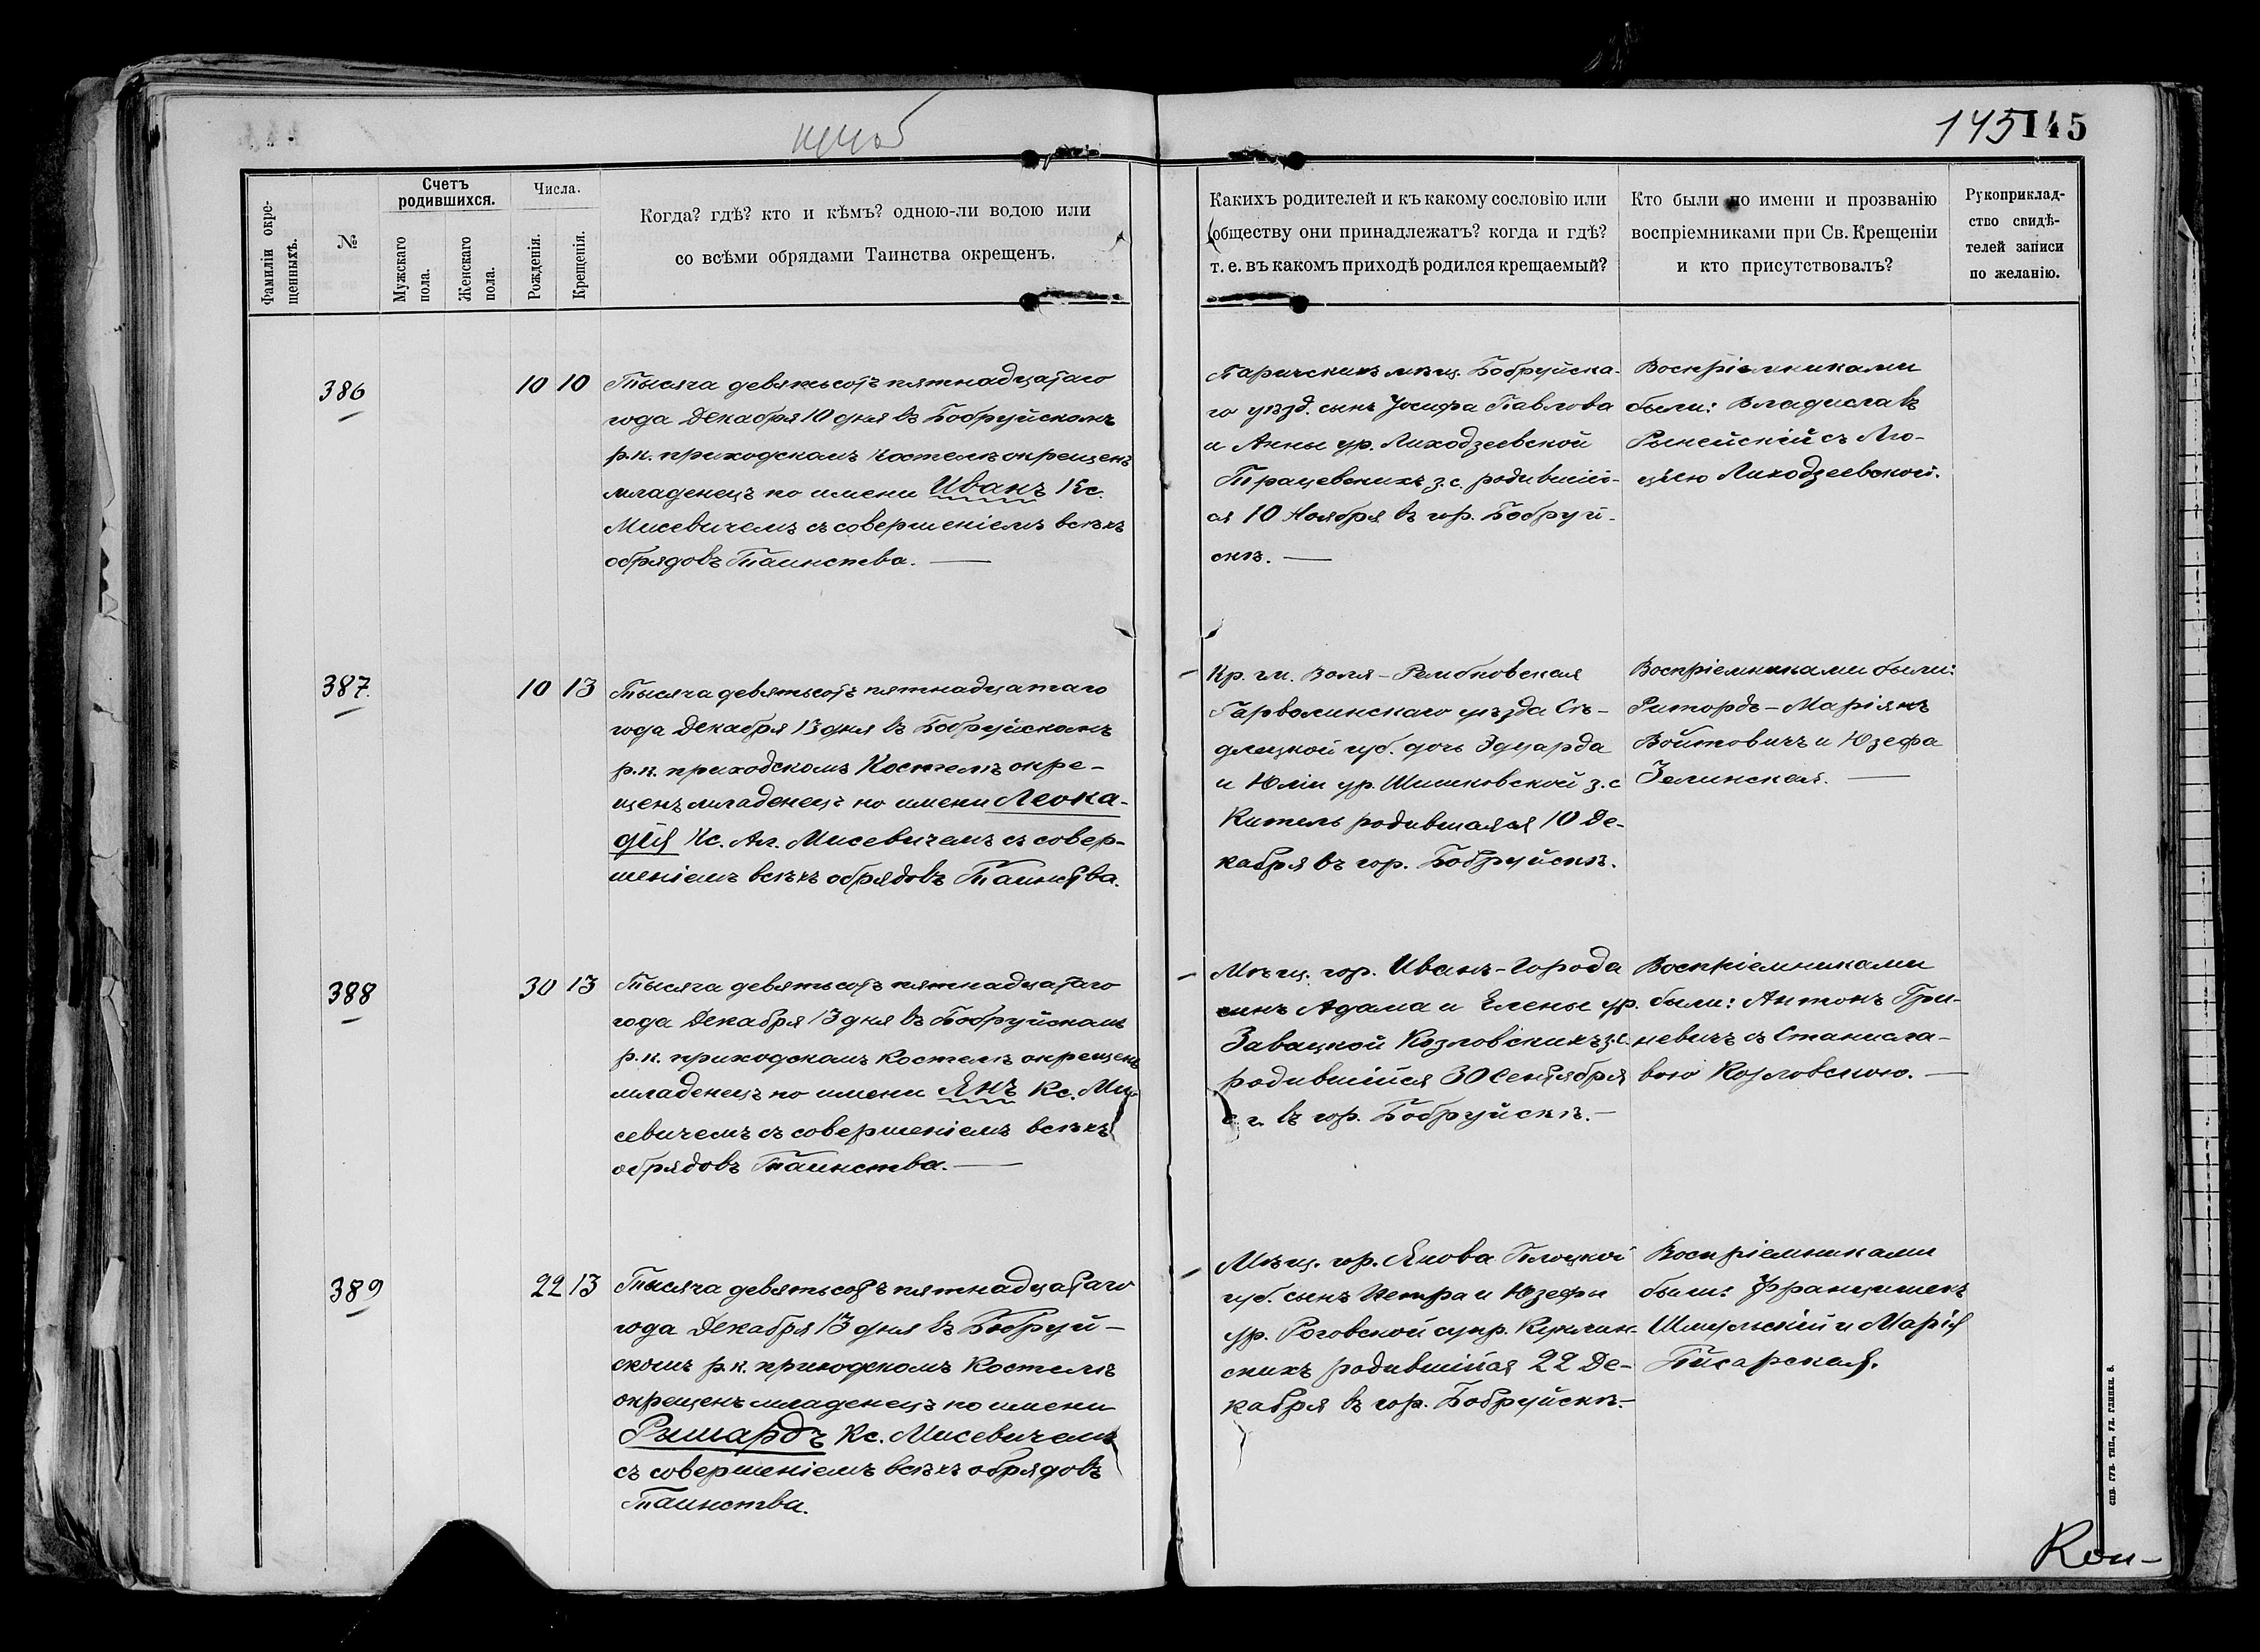 145 145
Фамиліи окре-
щенныхъ.
№
Счетъ
родившихся.
Мужскаго
пола.
Женскаго
пола.
Числа.
Рожденія.
Крещенія.
Когда? гдѣ? кто и кѣмъ? одною-ли водою или
со всѣми обрядами Таинства окрещенъ.
Какихъ родителей и къ какому сословію или
обществу они принадлежатъ? когда и гдѣ?
т. е. въ какомъ приходѣ родился крещаемый?
Кто были по имени и прозванію
воспріемниками при Св. Крещеніи
и кто присутствовалъ?
Рукоприклад-
ство свидѣ-
телей записи
по желанію.
386
10 10
Тысяча девятьсотъ пятнадцатаго
года Декабря 10 дня въ Бобруйскомъ
р.к. приходскомъ костелѣ окрещенъ
младенецъ по имени Иванъ Кс.
Мисевичемъ съ совершеніемъ всѣхъ
обрядовъ Таинства. —
Паричскихъ мѣщ. Бобруйска-
го уѣзд. сынъ Іосифа Павлова
и Анны ур. Лиходзеевской
Трацевскихъ з.с. родившій-
ся 10 Ноября въ гор. Бобруй-
скѣ. —
Воспріемниками
были: Владиславъ
Рынейскій съ Лю-
ціею Лиходзеевской.
387.
10 13
Тысяча девятьсотъ пятнадцатаго
года Декабря 13 дня въ Бобруйскомъ
р.к. приходскомъ Костелѣ окре-
щенъ младенецъ по имени Леока-
дія Кс. Ал. Мисевичемъ съ совер-
шеніемъ всѣхъ обрядовъ Таинства.
Кр. гм. Воля-Рембковская
Гарволинскаго уѣзда Сѣ-
длецкой губ. дочь Эдуарда
и Юліи ур. Шишковской з.с
Китель родившаяся 10 Де-
кабря въ гор. Бобруйскѣ.
Воспріемниками были:
Ритордъ-Маріянъ
Войтовичъ и Юзефа
Зелинская. —
388
30 13
Тысяча девятьсотъ пятнадцатаго
года Декабря 13 дня въ Бобруйскомъ
р.к. приходскомъ Костелѣ окрещенъ
младенецъ по имени Янъ Кс. Ми-
севичемъ съ совершеніемъ всѣхъ
обрядовъ Таинства. —
Мѣщ. гор. Иванъ-Города
сынъ Адама и Елены ур.
Завацкой Козловскихъ з.с.
родившійся 30 Сентября
с. г. въ гор. Бобруйскѣ. —
Воспріемниками
были: Антонъ Гри-
невичъ съ Станисла-
вою Козловскою. —
389
22 13
Тысяча девятьсотъ пятнадцатаго
года Декабря 13 дня въ Бобруй-
скомъ р.к. приходскомъ Костелѣ
окрещенъ младенецъ по имени
Рышардъ Кс. Мисевичемъ
съ совершеніемъ всѣхъ обрядовъ
Таинства.
Мѣщ. гор. Янова Плоцкой
губ. сынъ Петра и Юзефы
ур. Роговской супр. Куклин-
скихъ родившійся 22 Де-
кабря въ гор. Бобруйскѣ. —
Воспріемниками
были: Францишекъ
Шмульскій и Марія
Писарская.
спб. губ. тип., ул. глинки, 8.